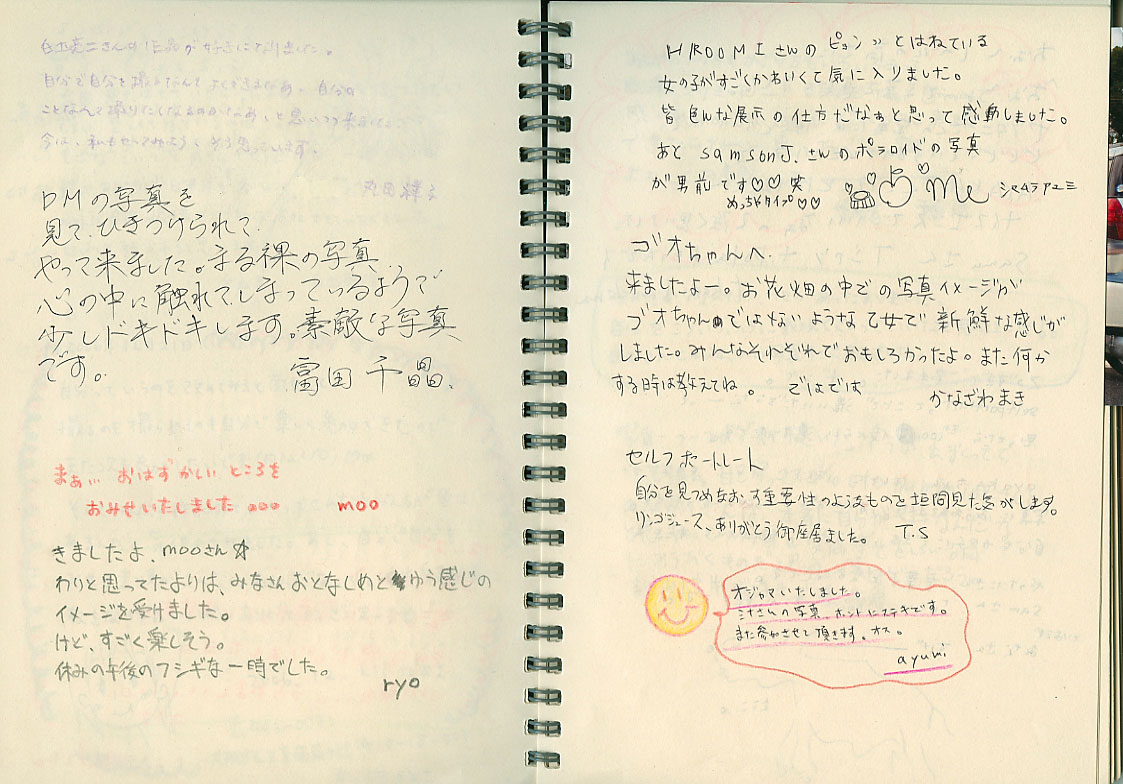 さんの作品が好きになりました。
自分で自分を撮るなんて よくできるなあ、自分の
ことなんて撮りたくなるのかなあ、と思いつつ来ました
今は、私もやってみよう、そう思っています。
DMの写真を
見て、ひきつけられて、
やって来ました。まる裸の写真
心の中に触れてしまっているようで
少しドキドキします。素敵な写真
です。 富田 千晶、
まぁぃ おはずかしい ところを
おみせいたしました 。。。 moo
きましたよ、mooさん☆
わりと思ってたよりは、みなさんおとなしめとゆう感じの
イメージを受けました。
けど、すごく楽しそう。
休みの午後のフシギな一時でした。
ryo
HIROOMIさんの ピョンッとはねている
女の子がすごくかわいくて気に入りました。
皆色んな展示の仕方だなぁと思って感動しました。
あと samsonJ.さんのポラロイドの写真
が男前です♡♡笑
めっちゃタイプ♡♡
Me
ゴオちゃんへ
来ましたよー。お花畑の中での写真イメージが
ゴオちゃんではないような乙女で新鮮な感じが
しました。みんなそれぞれでおもしろかったよ。また何か
する時は教えてね。 ではでは
かなざわまき
セルフポートレート
自分を見つめなおす重要性のようなものを垣間見た気がします。
リンゴジュース、ありがとう御座居ました。 T.S
オジャマいたしました。
ミナさんの写真、ホントにステキです。
また参加させて頂きます。オス。
ayumi